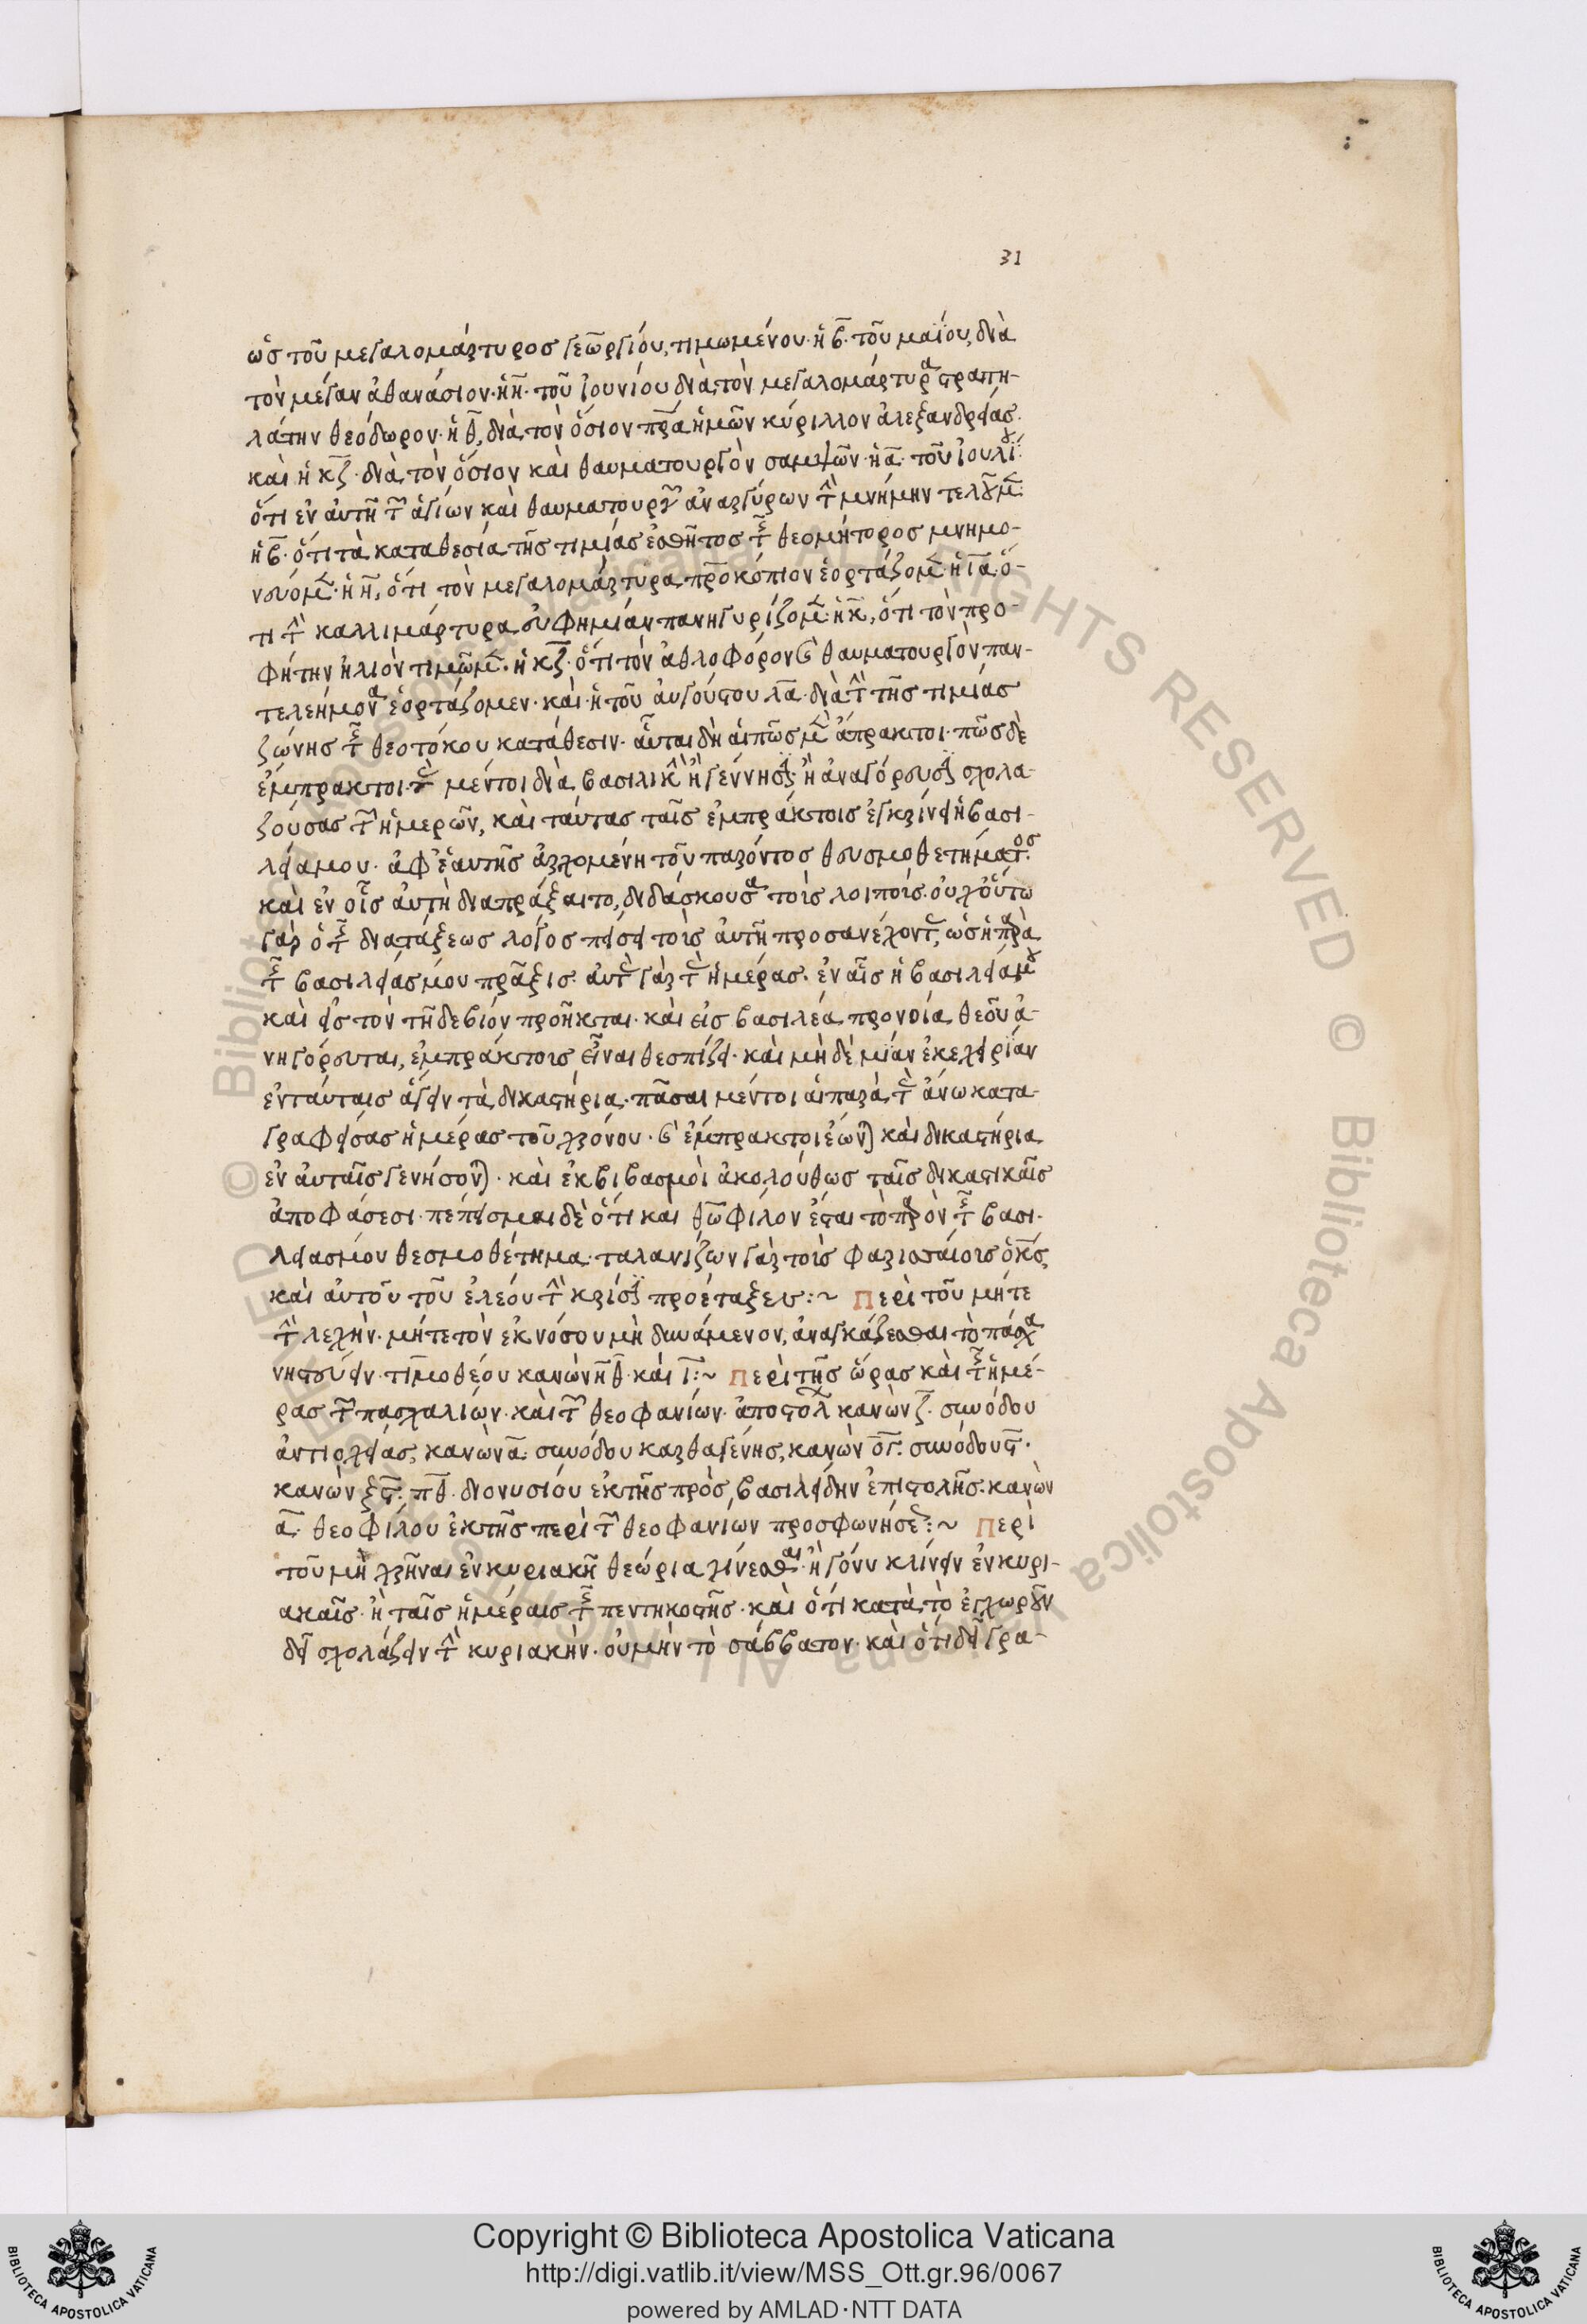 31
ὡς τοῦ μεγαλομάρτυρος γεωργίου, τιμωμένου· ἡ β̅· τοῦ μαΐου, διὰ
τὸν μέγαν ἀθανάσιον· ἡ η̅· τοῦ ἰουνίου διὰ τὸν μεγαλομάρτυρα στρατη-
λάτην θεόδωρον· ἡ θ̅, διὰ τὸν ὅσιον πρ̅α ἡμῶν κύριλλον ἀλεξανδρείας·
καὶ ἡ κζ̅· διὰ τὸν ὅσιον καὶ θαυματουργὸν σαμψών· ἡ α̅· τοῦ ἰουλίου·
ὅτι ἐν αὐτῇ τῶν ἁγίων καὶ θαυματουργῶν ἀναργύρων τὴν μνήμην τελοῦμεν·
ἡ β̅· ὅτι τὰ καταθεσία τῆς τιμίας ἐσθῆτος τῆς θεομήτορος μνημο-
νεύομεν· ἡ η̅, ὅτι τὸν μεγαλομάρτυρα προκόπιον ἑορτάζομεν· ἡ ια̅· ὅ-
τι τὴν καλλιμάρτυρα εὐφημίαν πανηγυρίζομεν· ἡ κ̅, ὅτι τὸν προ-
φήτην ἠλιοὺ τιμῶμεν· ἡ κζ̅· ὅτι τὸν ἀθλοφόρον καὶ θαυματουργὸν παν-
τελεήμονα ἑορτάζομεν· καὶ ἡ τοῦ αὐγούστου λα̅· διὰ τὴν τῆς τιμίας
ζώνης τῆς θεοτόκου κατάθεσιν· αὗται δὴ αἱ πῶς μὲν ἄπρακτοι· πῶς δὲ
ἔμπρακτοι· τὰς μέντοι διὰ βασιλικὴν ἢ γέννησιν· ἢ ἀναγόρευσιν σχολα-
ζούσας τῶν ἡμερῶν, καὶ ταύτας ταῖς ἐμπράκτοις ἐγκρίνει ἡ βασι-
λεία μου· ἀφ' ἑαυτῆς ἀρχομένη τοῦ παρόντος θεσμοθετήματος·
καὶ ἐν οἷς αὐτὴ διαπράξαιτο, διδάσκουσα τοῖς λοιποῖς· οὐχ οὕτω
γὰρ ὁ τῆς διατάξεως λόγος πείσει τοῖς αὐτῇ προσανέχοντας, ὡς ἡ παρὰ
τῆς βασιλείας μου πρᾶξις· αὐτὰς γὰρ τὰς ἡμέρας· ἐν αἷς ἡ βασιλεία μου
καὶ εἰς τὸν τῇδε βίον προῆκται· καὶ εἰς βασιλέα προνοία θεοῦ ἀ-
νηγόρευται, ἐμπράκτοις εἶναι θεσπίζει· καὶ μὴ δὲ μίαν ἐκεχειρίαν
ἐν ταύταις ἄγειν τὰ δικαστήρια· πᾶσαι μέντοι αἱ παρὰ τὰς ἄνω κατα-
γραφείσας ἡμέρας τοῦ χρόνου· καὶ ἔμπρακτοι ἔωνται καὶ δικαστήρια
ἐν αὐταῖς γενήσονται· καὶ ἐκβιβασμοὶ ἀκολούθως ταῖς δικαστικαῖς
ἀποφάσεσι· πέπεισμαι δὲ ὅτι καὶ θῶ φίλον ἔσται τὸ παρὸν τῆς βασι-
λείας μου θεσμοθέτημα· ταλανίζων γὰρ τοῖς φαρισαίοις ὁ κς̅,
καὶ αὐτοῦ τοῦ ἐλέου τὴν κρίσιν προέταξεν :~ Περὶ τοῦ μήτε
τὴν λεχὴν· μήτε τὸν ἐκ νόσου μὴ δυνάμενον, ἀναγκάζεσθαι τὸ πάσχα
νηστεύειν· τιμοθέου κανὼν η̅ θ̅· καὶ ι̅ :~ Περὶ τῆς ὥρας καὶ τῆς ἡμέ-
ρας τῶν πασχαλίων· καὶ τῶν θεοφανίων· ἀποστόλων κανὼν ζ̅· συνόδου
ἀντιοχείας, κανὼν α̅· συνόδου καρθαγένης, κανὼν ογ̅· συνόδου ϛ̅·
κανὼν ξϛ̅· πθ̅· διονυσίου ἐκ τῆς πρὸς βασιλείδην ἐπιστολῆς· κανὼν
α̅· θεοφίλου ἐκ τῆς περὶ τῶν θεοφανίων προσφωνήσεως :~ Περὶ
τοῦ μὴ χρῆναι ἐν κυριακῇ θεώρια γίνεσθαι· ἢ γόνυ κλίνειν ἐν κυρι-
ακαῖς· ἢ ταῖς ἡμέραις τῆς πεντηκοστῆς· καὶ ὅτι κατὰ τὸ ἐγχωροῦν
δεῖ σχολάζειν τὴν κυριακὴν· οὐ μὴν τὸ σάββατον· καὶ ὅτι δεῖ γρα-
Copyright © Biblioteca Apostolica Vaticana
http://digi.vatlib.it/view/MSS_Ott.gr.96/0067
powered by AMLAD·NTT DATA
BIBLIOTECA APOSTOLICA VATICANA
BIBLIOTECA APOSTOLICA VATICANA